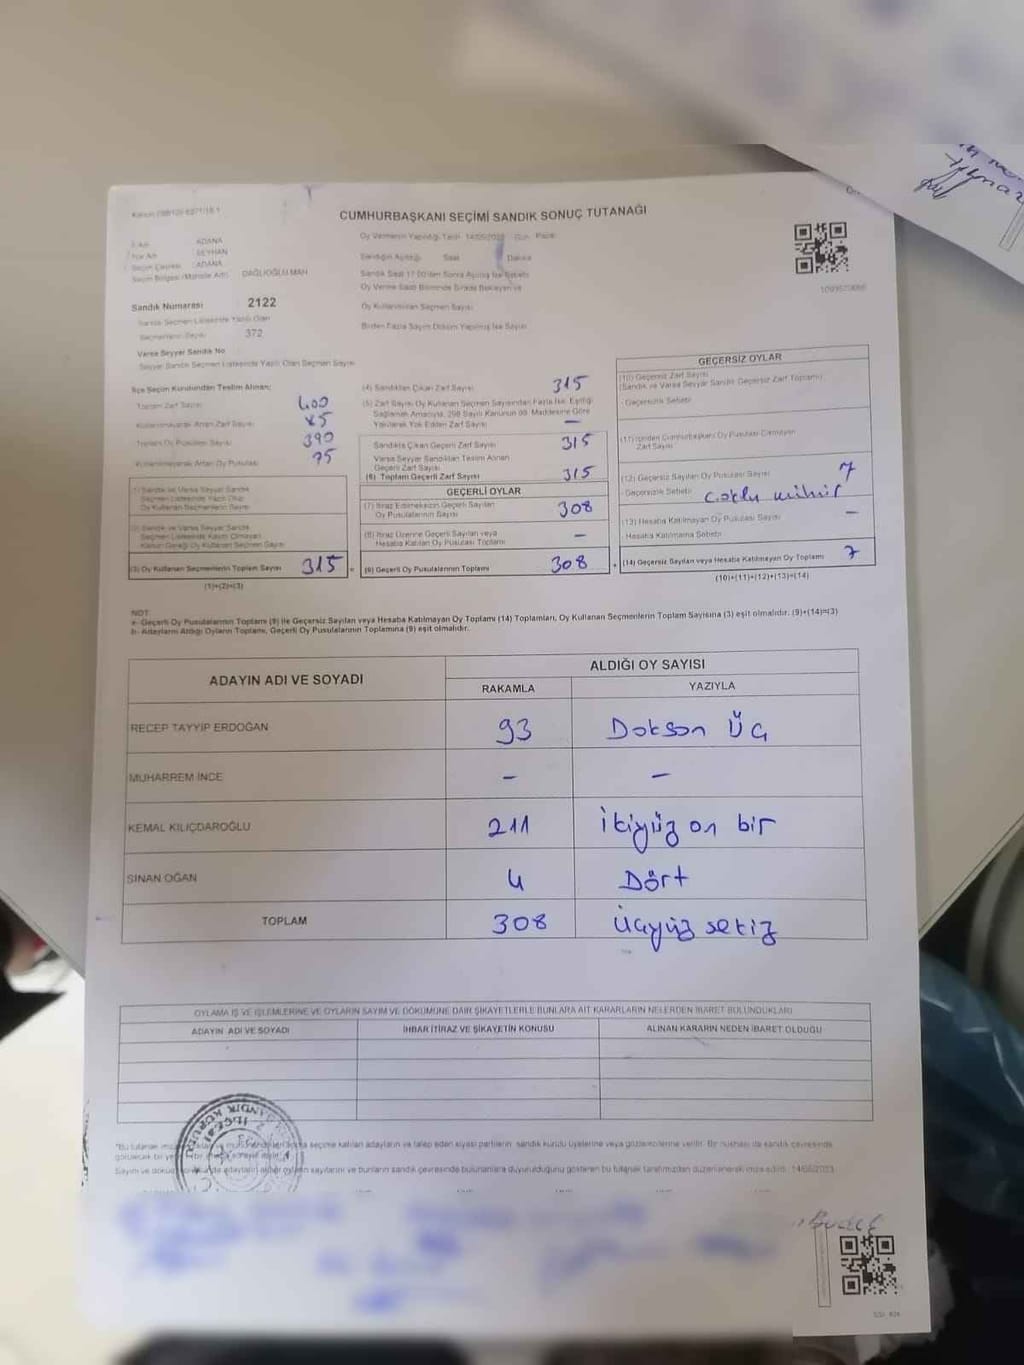 CUMHURBAŞKANI SEÇİMİ SANDIK SONUÇ TUTANAĞI
İl Adı ADANA
İlçe Adı SEYHAN
Seçim Çevresi ADANA
Seçim Bölgesi (Mahalle Adı) DAĞLIOĞLU MAH
Sandık Numarası 2122
Sandık Seçmen Listesinde Yazılı Olan
Seçmenlerin Sayısı 372
Varsa Seyyar Sandık No
Seyyar Sandık Seçmen Listesinde Yazılı Olan Seçmen Sayısı
Oy Vermenin Yapıldığı Tarih 14/05/2023 Gün Pazar
Sandığın Açıldığı Saat Dakika
Sandık Saat 17.00'den Sonra Açılmış İse Sebebi
Oy Verme Saati Bitiminde Sırada Bekleyen ve
Oy Kullandırılan Seçmen Sayısı
Birden Fazla Sayım Döküm Yapılmış İse Sayısı
İlçe Seçim Kurulundan Teslim Alınan;
Toplam Zarf Sayısı 400
Kullanılmayarak Artan Zarf Sayısı 85
Toplam Oy Pusulası Sayısı 390
Kullanılmayarak Artan Oy Pusulası 75
(1) Sandık ve Varsa Seyyar Sandık
Seçmen Listesinde Yazılı Olup
Oy Kullanan Seçmenlerin Sayısı
(2) Sandık ve Varsa Seyyar Sandık
Seçmen Listesinde Kaydı Olmayan
Kanun Gereği Oy Kullanan Seçmenlerin Sayısı
(3) Oy Kullanan Seçmenlerin Toplam Sayısı 315
(1)+(2)=(3)
(4) Sandıktan Çıkan Zarf Sayısı 315
(5) Zarf Sayısı Oy Kullanan Seçmen Sayısından Fazla İse, Eşitliği
Sağlamak Amacıyla, 298 Sayılı Kanunun 98. Maddesine Göre
Yakılarak Yok Edilen Zarf Sayısı —
Sandıkta Çıkan Geçerli Zarf Sayısı 315
Varsa Seyyar Sandıktan Teslim Alınan
Geçerli Zarf Sayısı
(6) Toplam Geçerli Zarf Sayısı 315
GEÇERLİ OYLAR
(7) İtiraz Edilmeksizin Geçerli Sayılan
Oy Pusulalarının Sayısı 308
(8) İtiraz Üzerine Geçerli Sayılan veya
Hesaba Katılan Oy Pusulaları Toplamı —
(9) Geçerli Oy Pusulalarının Toplamı 308
GEÇERSİZ OYLAR
(10) Geçersiz Zarf Sayısı
(Sandık ve Varsa Seyyar Sandık Geçersiz Zarf Toplamı)
Geçersizlik Sebebi
(11) İçinden Cumhurbaşkanı Oy Pusulası Çıkmayan
Zarf Sayısı
(12) Geçersiz Sayılan Oy Pusulası Sayısı 7
Geçersizlik Sebebi çoklu mühür
(13) Hesaba Katılmayan Oy Pusulası Sayısı —
Hesaba Katılmama Sebebi
(14) Geçersiz Sayılan veya Hesaba Katılmayan Oy Toplamı 7
(10)+(11)+(12)+(13)=(14)
NOT:
a- Geçerli Oy Pusulalarının Toplamı (9) ile Geçersiz Sayılan veya Hesaba Katılmayan Oy Toplamı (14) Toplamları, Oy Kullanan Seçmenlerin Toplam Sayısına (3) eşit olmalıdır. (9)+(14)=(3)
b- Adayların Aldığı Oyların Toplamı, Geçerli Oy Pusulalarının Toplamına (9) eşit olmalıdır.
ADAYIN ADI VE SOYADI ALDIĞI OY SAYISI
RAKAMLA YAZIYLA
RECEP TAYYİP ERDOĞAN 93 Doksan Üç
MUHARREM İNCE – –
KEMAL KILIÇDAROĞLU 211 İkiyüz on bir
SİNAN OĞAN 4 Dört
TOPLAM 308 Üçyüz sekiz
OYLAMA İŞ VE İŞLEMLERİNE VE OYLARIN SAYIM VE DÖKÜMÜNE DAİR ŞİKAYETLERLE BUNLARA AİT KARARLARIN NELERDEN İBARET BULUNDUKLARI
ADAYIN ADI VE SOYADI İHBAR İTİRAZ VE ŞİKAYETİN KONUSU ALINAN KARARIN NEDEN İBARET OLDUĞU
seçime katılan adayların ve talep eden siyasi partilerin sandık kurulu üyelerine veya gözlemcilerine verilir. Bir nüshası da sandık çevresinde
sayılarını ve bunların sandık çevresinde bulunanlara duyurulduğunu gösteren bu tutanak tarafımızdan düzenlenerek imza edildi. 14/05/2023